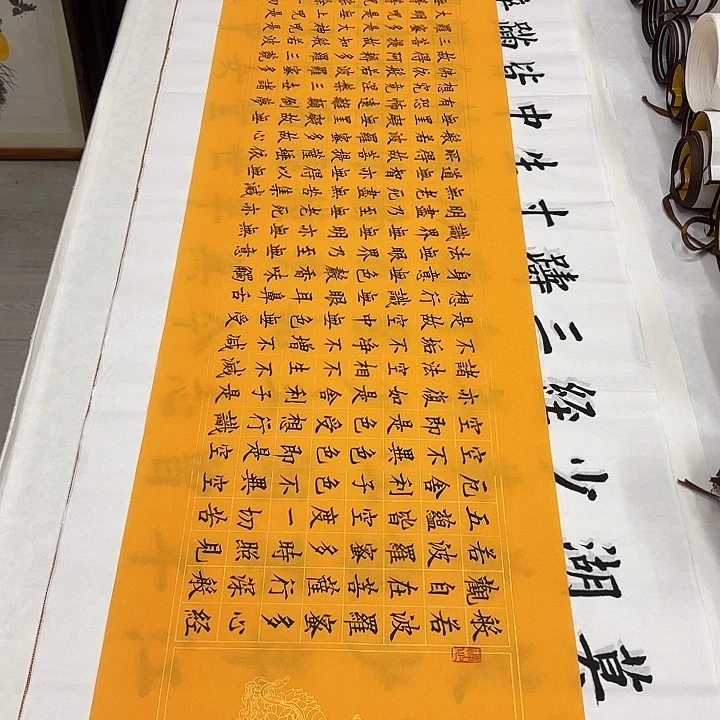 般若波羅蜜多心經
觀自在菩薩行深般
若波羅蜜多時照見
五蘊皆空度一切苦
厄舍利子色不異空
空不異色色即是空
空即是色受想行識
亦復如是舍利子是
諸法空相不生不滅
不垢不淨不增不減
是故空中無色無受
想行識無眼耳鼻舌
身意無色聲香味觸
法無眼界乃至無意
識界乃至無無明亦無
明盡乃至無老死亦
無老死盡無苦集滅
道無智亦無得以無
所得故菩提薩埵依
般若波羅蜜多故心
無罣礙無罣礙故無
有恐怖遠離顛倒夢
想究竟涅槃三世諸
佛依般若波羅蜜多
故得阿耨多羅三藐
三菩提故知般若波
羅蜜多是大神咒是
大明咒是無上咒是
湖
少
經
三
寸
中